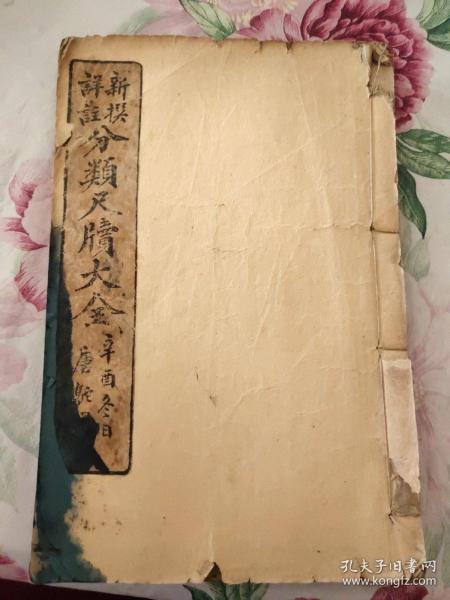 新撰
詳註
分類尺牘大全
辛酉冬日
唐駝
孔夫子旧书网
www.kongfz.com